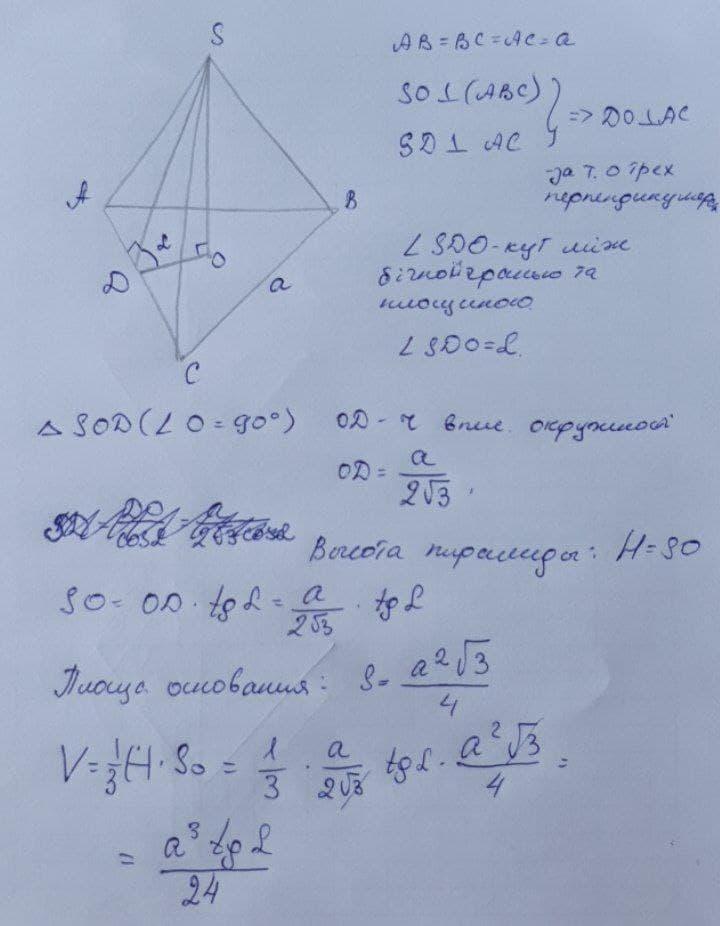 S
A
B
D
L
O
a
C
AB = BC = AC = a
SO ⊥ (ABC)
SD ⊥ AC
=> DO ⊥ AC
- за т. о трех
∠SDO - кут між
бічной гранью та
площиною.
∠SDO = L.
△ SOD (∠O = 90°)
OD - r впис. окружності
OD = a/2√3,
Высота пирамиды: H = SO
SO = OD · tg L = a/2√3 · tg L
Площа основания: S = a²√3/4
V = 1/3 H · So = 1/3 · a/2√3 tg L · a²√3/4 =
= a³ tg L/24